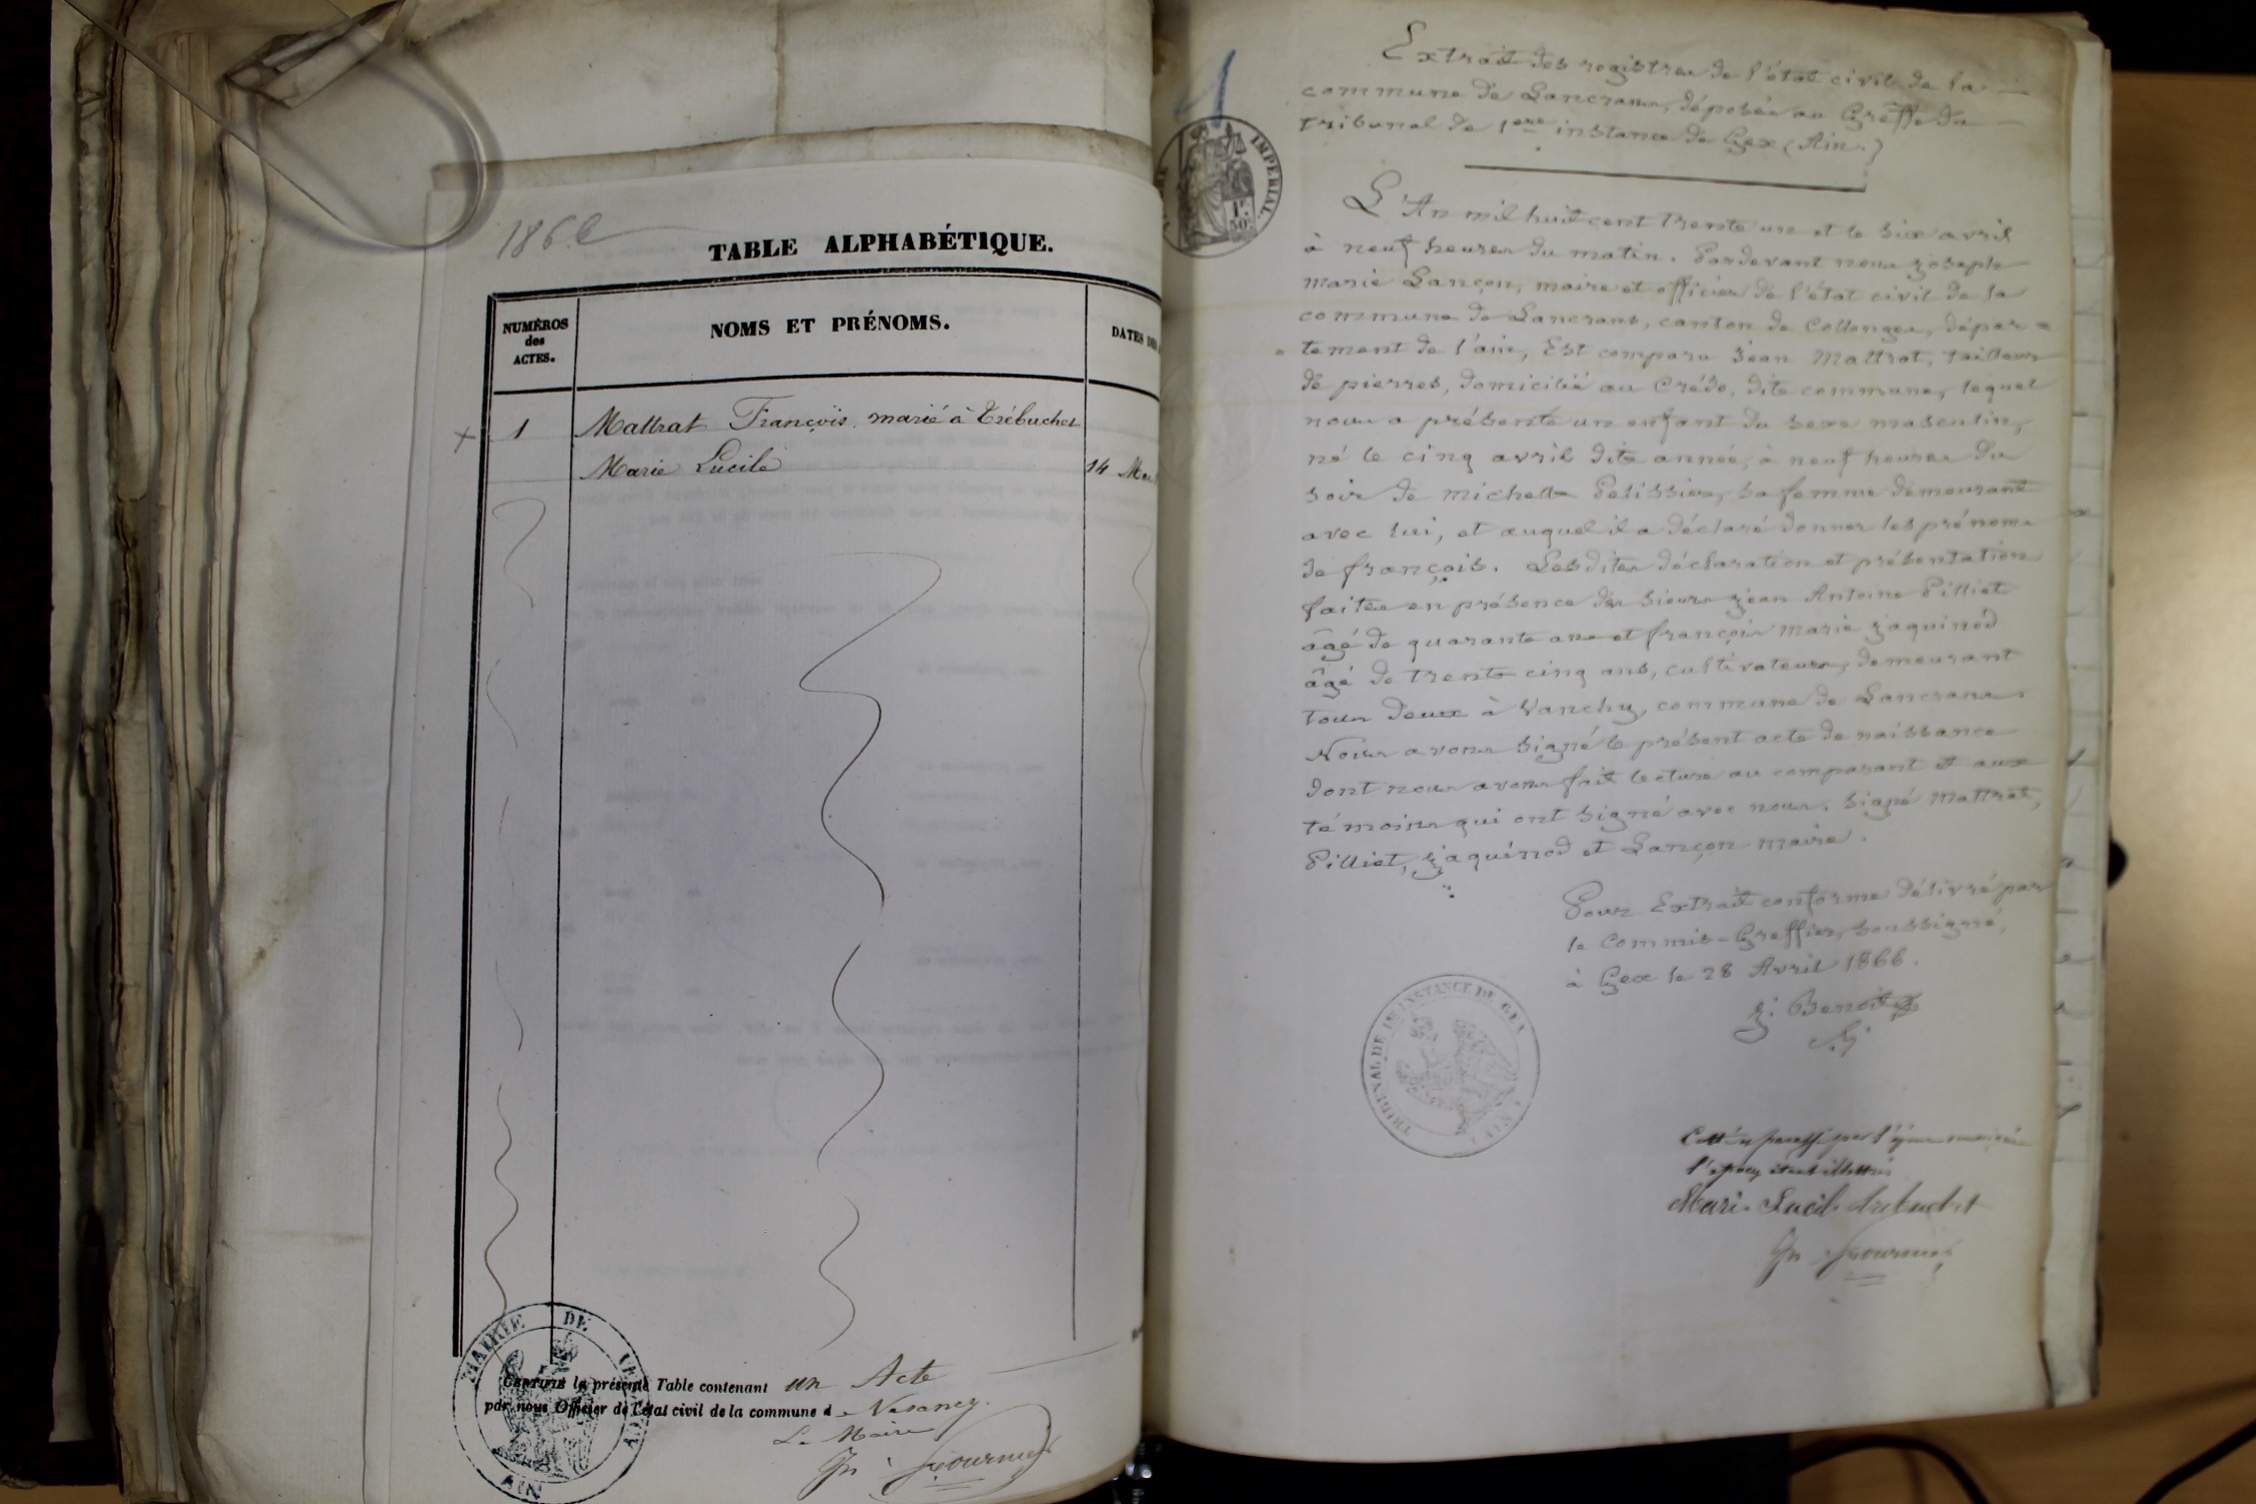 1866
TABLE ALPHABÉTIQUE.
NUMÉROS
des
ACTES.
NOMS ET PRÉNOMS.
DATES DES
1
Mattrat François marié à Trébuchet
Marie Lucile
14
CERTIFIÉ la présente Table contenant un Acte
par nous Officier de l'état civil de la commune d
Le Maire
MAIRIE DE
AIN
1
IMPÉRIAL
1F.
50C.
Extrait des registres de l'état civil de la
commune de Lancrans, déposés au Greffe du
tribunal de 1ere instance de Gex (Ain.)
L'An mil huit cent trente un et le six avril
à neuf heures du matin. Pardevant nous Joseph
marie Lançon, maire et officier de l'état civil de la
commune de Lancrans, canton de Collonges, dépar=
=tement de l'ain, Est comparu Jean Mattrat, tailleur
de pierres, domicilié au Crédo, dite commune, lequel
nous a présenté un enfant du sexe masculin,
né le cinq avril dite année, à neuf heures du
soir de michelle Pelissier, sa femme demeurant
avec lui, et auquel il a déclaré donner les prénoms
de françois. Lesdites déclaration et présentation
faites en présence des sieurs Jean Antoine Pilliet
âgé de quarante ans et françois marie Jaquinod
âgé de trente cinq ans, cultivateurs, demeurant
tous deux à Vanchy, commune de Lancrans.
Nous avons signé le présent acte de naissance
dont nous avons fait lecture au comparant et aux
témoins qui ont signé avec nous. Signé Mattrat,
Pilliet, Jaquinod et Lançon maire.
Pour Extrait conforme délivré par
le Commis-Greffier, soussigné,
à Gex le 28 Avril 1866.
J. Benoit
TRIBUNAL DE 1RE INSTANCE DE GEX
Marie Lucile trébuchet